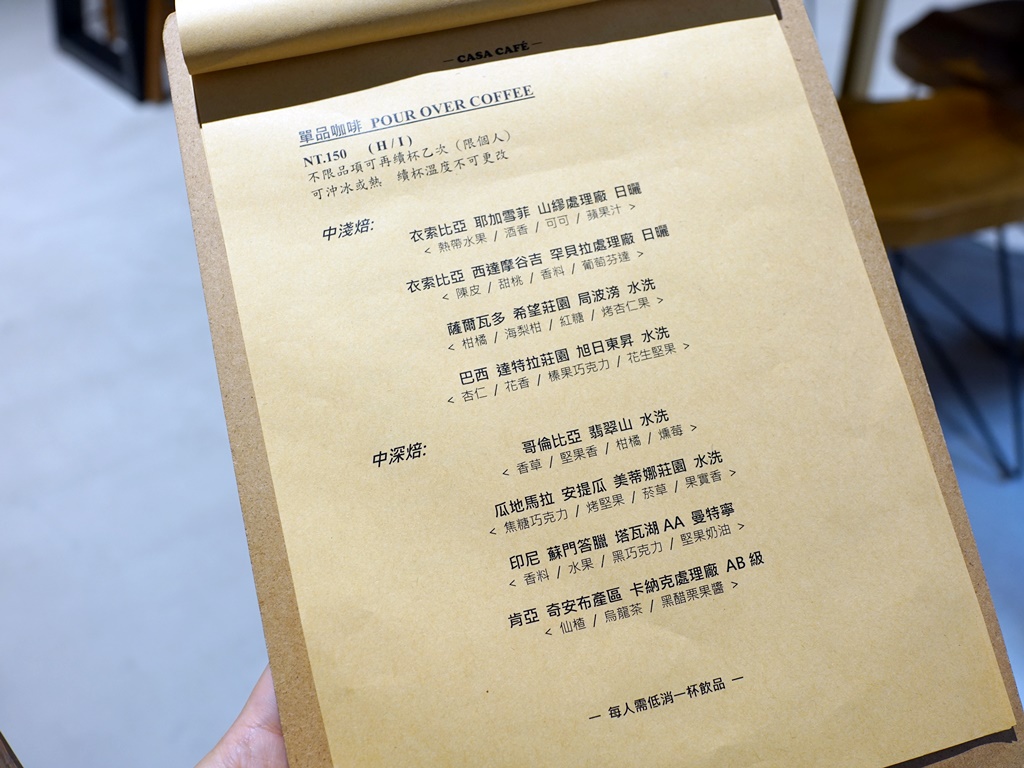 — CASA CAFÉ —
單品咖啡 POUR OVER COFFEE
NT.150 (H/I)
不限品項可再續杯乙次（限個人）
可沖冰或熱 續杯溫度不可更改
中淺焙:
衣索比亞 耶加雪菲 山繆處理廠 日曬
< 熱帶水果 / 酒香 / 可可 / 蘋果汁 >
衣索比亞 西達摩谷吉 罕貝拉處理廠 日曬
< 陳皮 / 甜桃 / 香料 / 葡萄芬達 >
薩爾瓦多 希望莊園 局波滂 水洗
< 柑橘 / 海梨柑 / 紅糖 / 烤杏仁果 >
巴西 達特拉莊園 旭日東昇 水洗
< 杏仁 / 花香 / 榛果巧克力 / 花生堅果 >
中深焙:
哥倫比亞 翡翠山 水洗
< 香草 / 堅果香 / 柑橘 / 燻莓 >
瓜地馬拉 安提瓜 美蒂娜莊園 水洗
< 焦糖巧克力 / 烤堅果 / 菸草 / 果實香 >
印尼 蘇門答臘 塔瓦湖 AA 曼特寧
< 香料 / 水果 / 黑巧克力 / 堅果奶油 >
肯亞 奇安布產區 卡納克處理廠 AB 級
< 仙楂 / 烏龍茶 / 黑醋栗果醬 >
— 每人需低消一杯飲品 —